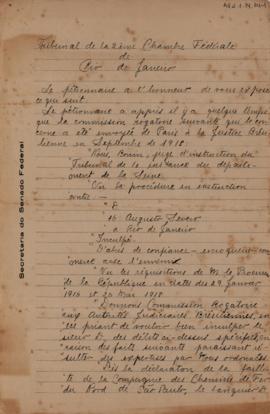 Tribunal de la 2ème Chambre Fédérale
de
Rio de Janeiro
Le pétionnaire a l'honneur de vous expose
ce qui suit.
Le pétionnaire a appris il y a quelque temps
que la commission rogatoire suivante qui le con
cerne a été envoyée de Paris à la Justice Brési
lienne en Septembre de 1918:
"Nous, Bonin, juge d'instruction du
Tribunal de la instance du départe-
ment de la Seine
"Vu la procédure en instruction
contre —
"P
"16 Augusto Severo
à Rio de Janeiro
"Inculpé
D'abus de confiance
"Vu les réquisitions de M. le Procureur
de la République en dates des 29 Janvier
1916 et 20 Mai 1918
"Donnons Commission Rogatoire
aux Autorités Judiciaires Brésiliennes, en
les priant de vouloir bien inculper le
sieur D. des délits ci-dessus spécifiés, en
raison des faits suivants paraissant ré-
sulter des expertises par Nous ordonnées.
Dès la déclaration de la fail-
te de la Compagnie des Chemins de Fer
du Nord de São Paulo, le banquier D.
Secretaria do Senado Federal